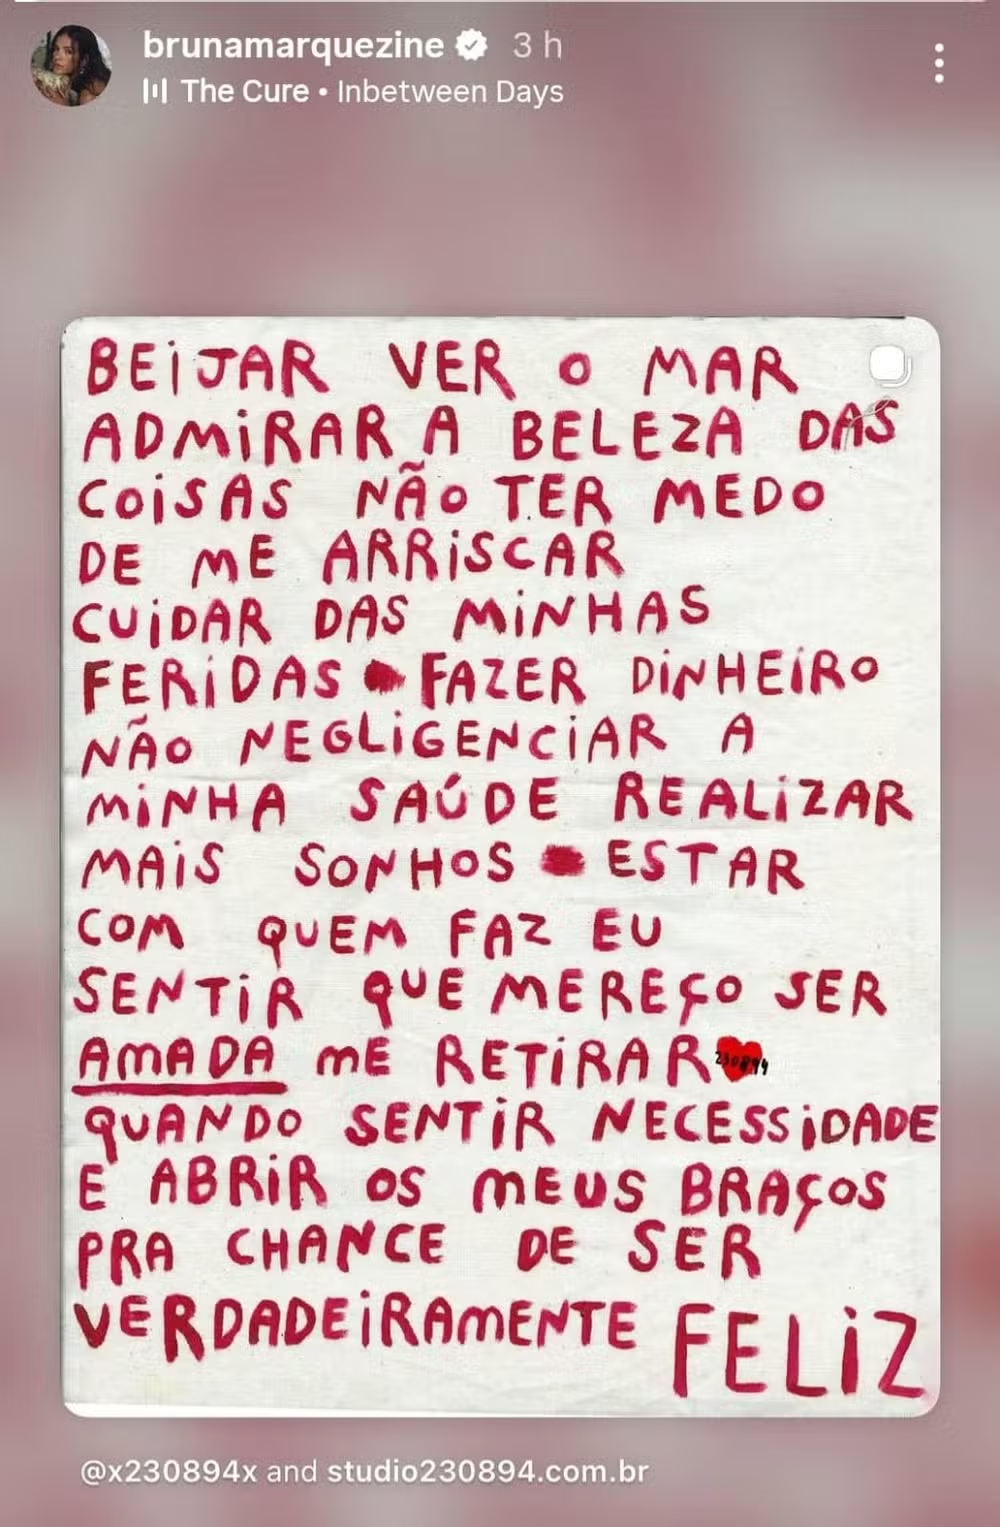 brunamarquezine 3 h
The Cure • Inbetween Days
BEIJAR VER O MAR
ADMIRAR A BELEZA DAS
COISAS NÃO TER MEDO
DE ME ARRISCAR
CUIDAR DAS MINHAS
FERIDAS FAZER DINHEIRO
NÃO NEGLIGENCIAR A
MINHA SAÚDE REALIZAR
MAIS SONHOS ESTAR
COM QUEM FAZ EU
SENTIR QUE MEREÇO SER
AMADA ME RETIRAR 230894
QUANDO SENTIR NECESSIDADE
E ABRIR OS MEUS BRAÇOS
PRA CHANCE DE SER
VERDADEIRAMENTE FELIZ
@x230894x and studio230894.com.br